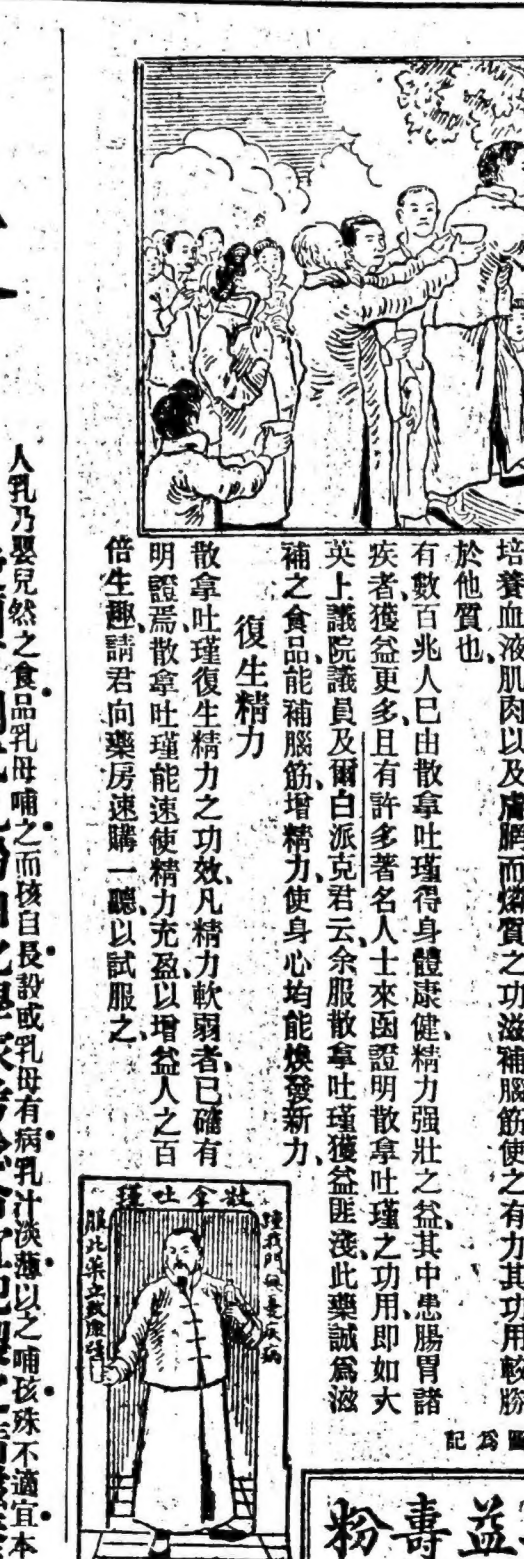 培養血液肌肉以及膚膶而燐質之功滋補腦筋使之有力其功用較勝
於他質也
有數百兆人已由散拿吐瑾得身體康健精力强壯之益其中患腸胃諸
疾者獲益更多且有許多著名人士來函證明散拿吐瑾之功用即如大
英上議院議員及爾白派克君云余服散拿吐瑾獲益匪淺此藥誠爲滋
補之食品能補腦筋增精力使身心均能煥發新力
復生精力
散拿吐瑾復生精力之功效凡精力軟弱者已確有
明證焉散拿吐瑾能速使精力充盈以增益人之百
倍生趣請君向藥房速購一聽以試服之
圖爲記
散拿吐瑾
我門無憂疾病
服此藥立致康強
益壽粉
人乳乃嬰兒然之食品乳母哺之而孩自長設或乳母有病乳汁淡薄以之哺孩殊不適宜本